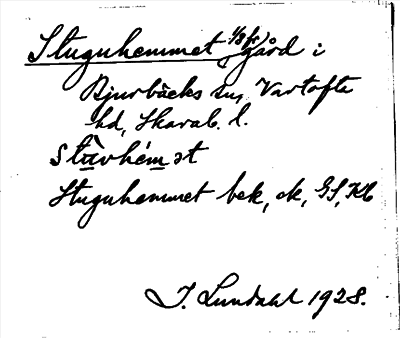 Stuguhemmet, 1/8 fr, gård i
Bjurbäcks sn, Vartofta
hd, Skarab. l.
stùvhém ət
Stuguhemmet bek, ok, GS, Kb
J. Lundahl 1928.